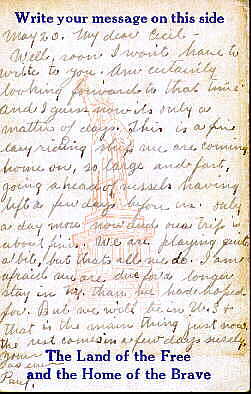 Write your message on this side
May 20. My dear Cecil -
Well, soon I won't have to
write to you. Am certainly
looking forward to that time
and I guess now its only a
matter of days. This is a fine
easy riding ship we are coming
home on, so large and fast,
going ahead of vessels having
left a few days before us. Only
a day more now and our trip is
about fini. We are playing quite
a bit, but that's all we do. I am
afraid we are due for a longer
stay in than we have hoped
for. But we will be in U.S. +
that is the main thing just now
the rest comes in a few days surely.
Your
as ever
The Land of the Free
and the Home of the Brave